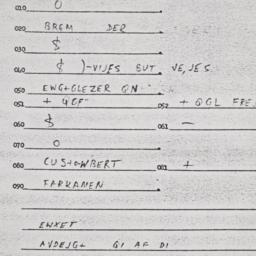 010 0
020 BREM DER
030 $
040 $ )-VIJES BUT VE, JES
050 EWG+GLEZER QN
051 + 4CF 052 + QGL FRE
060 $ 061 -
070 0
080 CUS+OWBERT 081 +
090 TARKAMEN
EWXET
AVDEJG+ GI AF DI